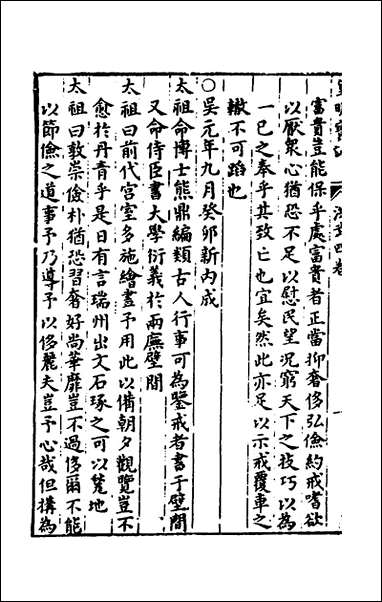 富貴豈能保乎處富貴者正當抑奢侈弘儉約戒嗜欲
以厭衆心猶恐不足以慰民望况窮天下之技巧以為
一已之奉乎其致亡也宜矣然此亦足以示戒覆車之
轍不可蹈也
○吳元年九月癸卯新内成
太祖命博士熊鼎編類古人行事可為鑒戒者書于壁間
又命侍臣書大學衍義於兩廡壁間
太祖曰前代宮室多施繪畫予用此以備朝夕觀覽豈不
愈於丹青乎是日有言瑞州出文石琢之可以甃地
太祖曰敦崇儉朴猶恐習奢好尚華靡豈不過侈爾不能
以節儉之道事予乃導予以侈麗夫豈予心哉但構為